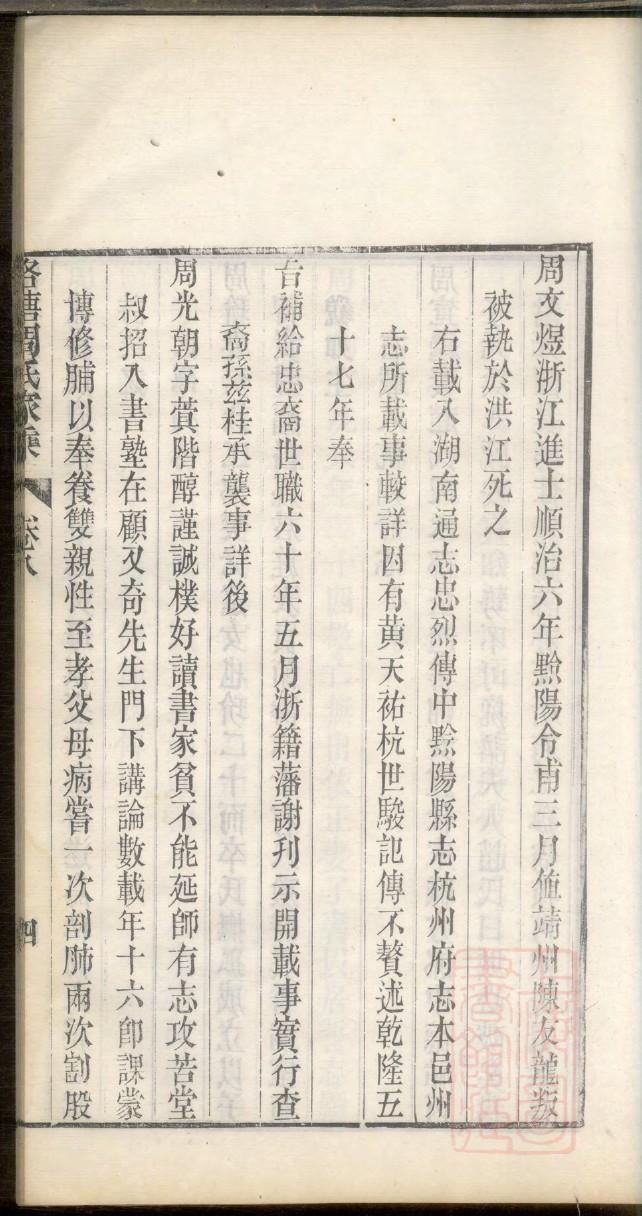 周文煜浙江進士順治六年黔陽令甫三月值靖州陳友龍叛
被執於洪江死之
右載入湖南通志忠烈傳中黔陽縣志杭州府志本邑州
志所載事較詳因有黄天祐杭世駿記傳不贅述乾隆五
十七年奉
旨補給忠裔世職六十年五月浙籍藩謝刋示開載事實行查
裔孫兹桂承襲事詳後
周光朝字蓂階醇謹誠樸好讀書家貧不能延師有志攻苦堂
叔招入書塾在顧又奇先生門下講論數載年十六卽課蒙
博修脯以奉養雙親性至孝父母病嘗一次剖肺兩次割股
洛塘周氏家乘 卷八 四